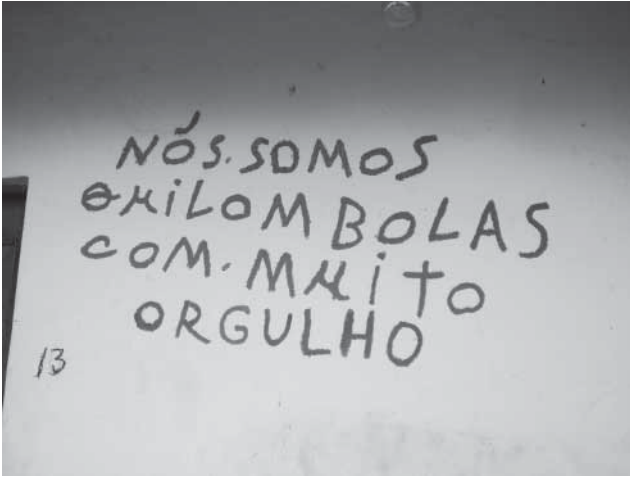 NÓS. SOMOS
QUILOMBOLAS
COM. MUITO
ORGULHO
13